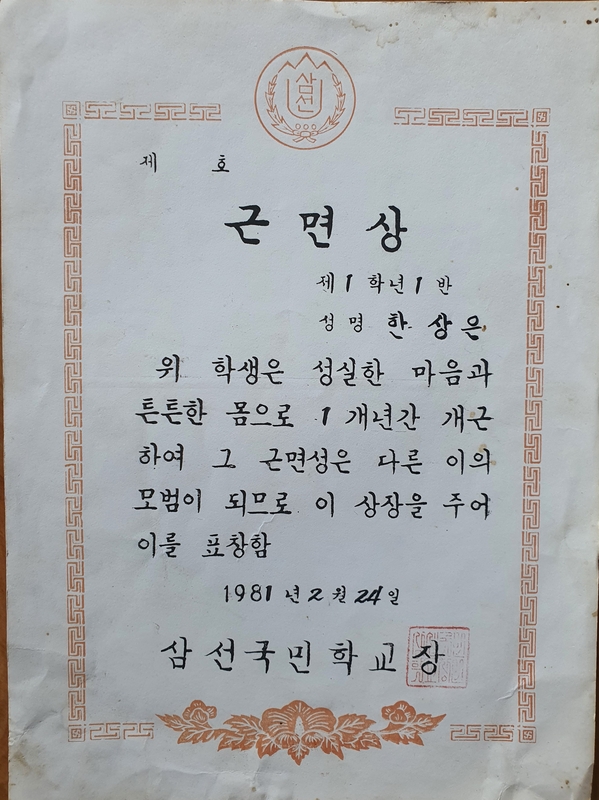 삼선
제 호
근면상
제 1 학년 1 반
성명 한상은
위 학생은 성실한 마음과
튼튼한 몸으로 1 개년간 개근
하여 그 근면성은 다른 이의
모범이 되므로 이 상장을 주어
이를 표창함
1981년 2월 24일
삼선국민학교장